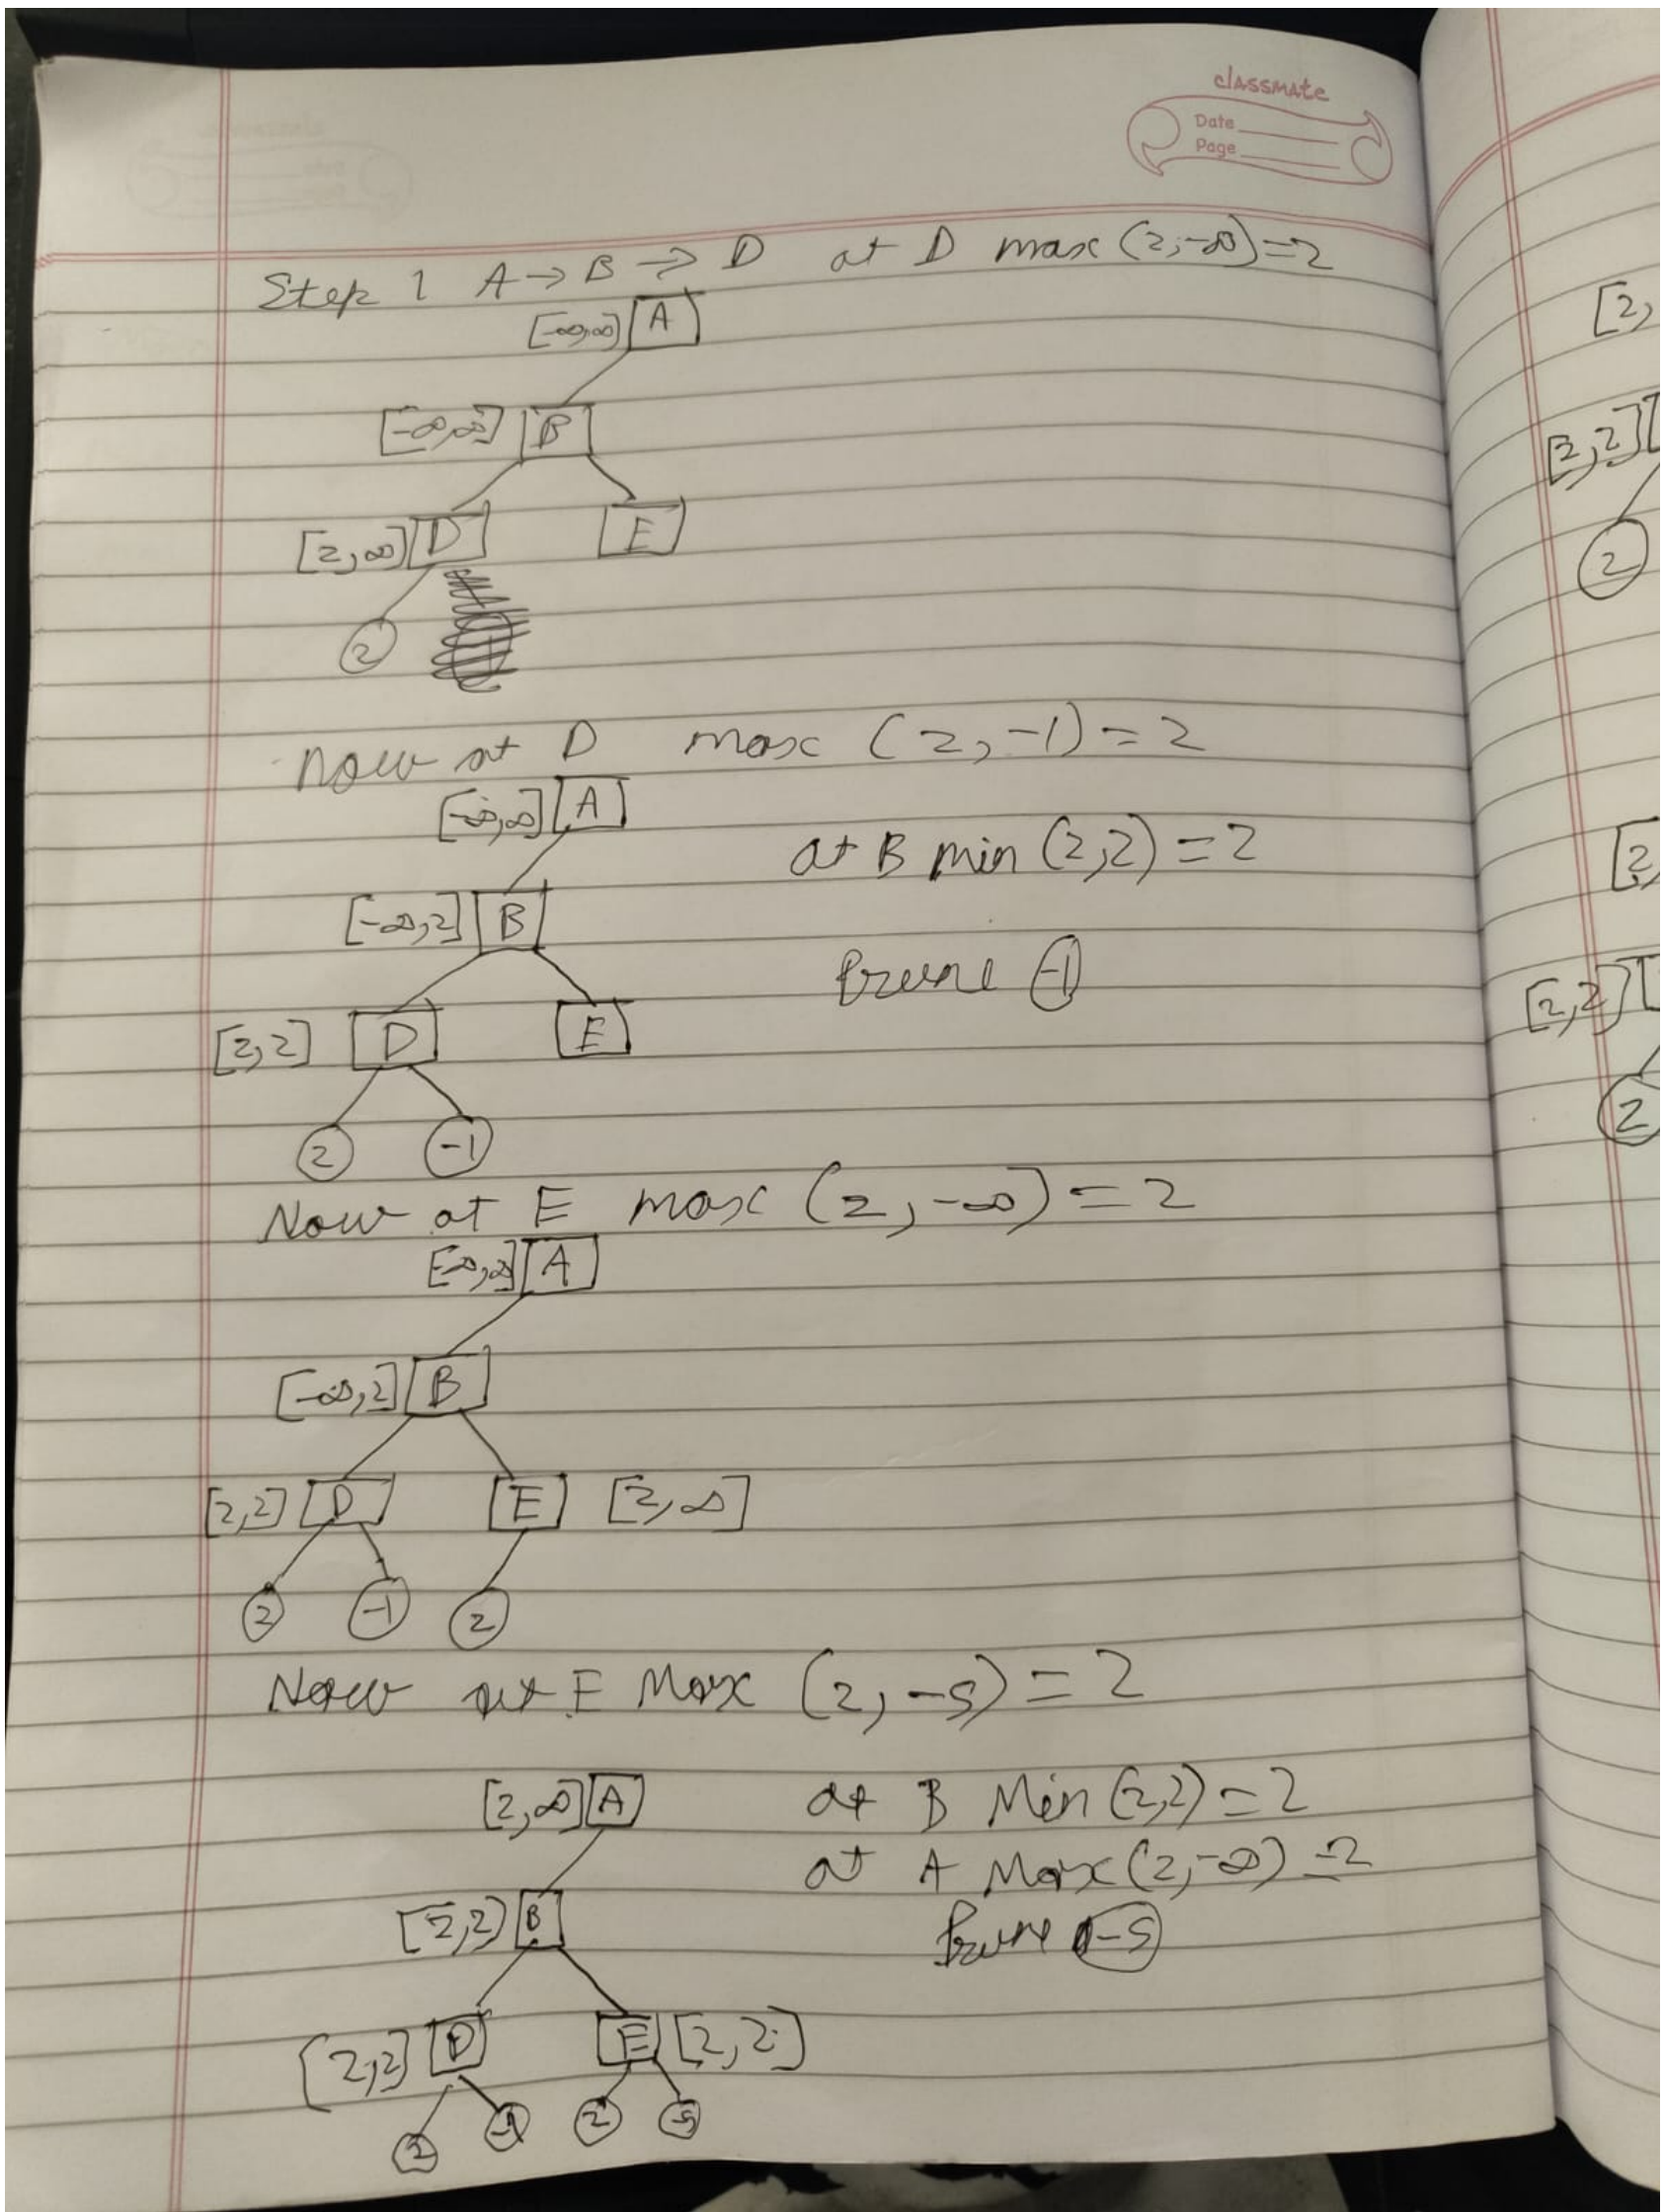 classmate
Date
Page
Step 1 A → B → D at D max (2, -∞) = 2
[-∞, ∞] A
[-∞, ∞] B
[2, ∞] D E
2
Now at D max (2, -1) = 2
[-∞, ∞] A
at B min (2, 2) = 2
[-∞, 2] B
Prune -1
[2, 2] D E
2 -1
Now at E max (2, -∞) = 2
[-∞, ∞] A
[-∞, 2] B
[2, 2] D E [2, ∞]
2 -1 2
Now at E Max (2, -5) = 2
[2, ∞] A at B Min (2, 2) = 2
at A Max (2, -∞) = 2
[2, 2] B Prune -5
[2, 2] D E [2, 2]
2 -1 2 -5
[2,
[2, 2]
2
[2,
[2, 2]
2